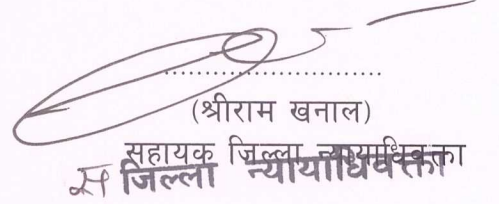 (श्रीराम खनाल)
सहायक जिल्ला न्यायाधिवक्ता
स जिल्ला न्यायाधिवक्ता